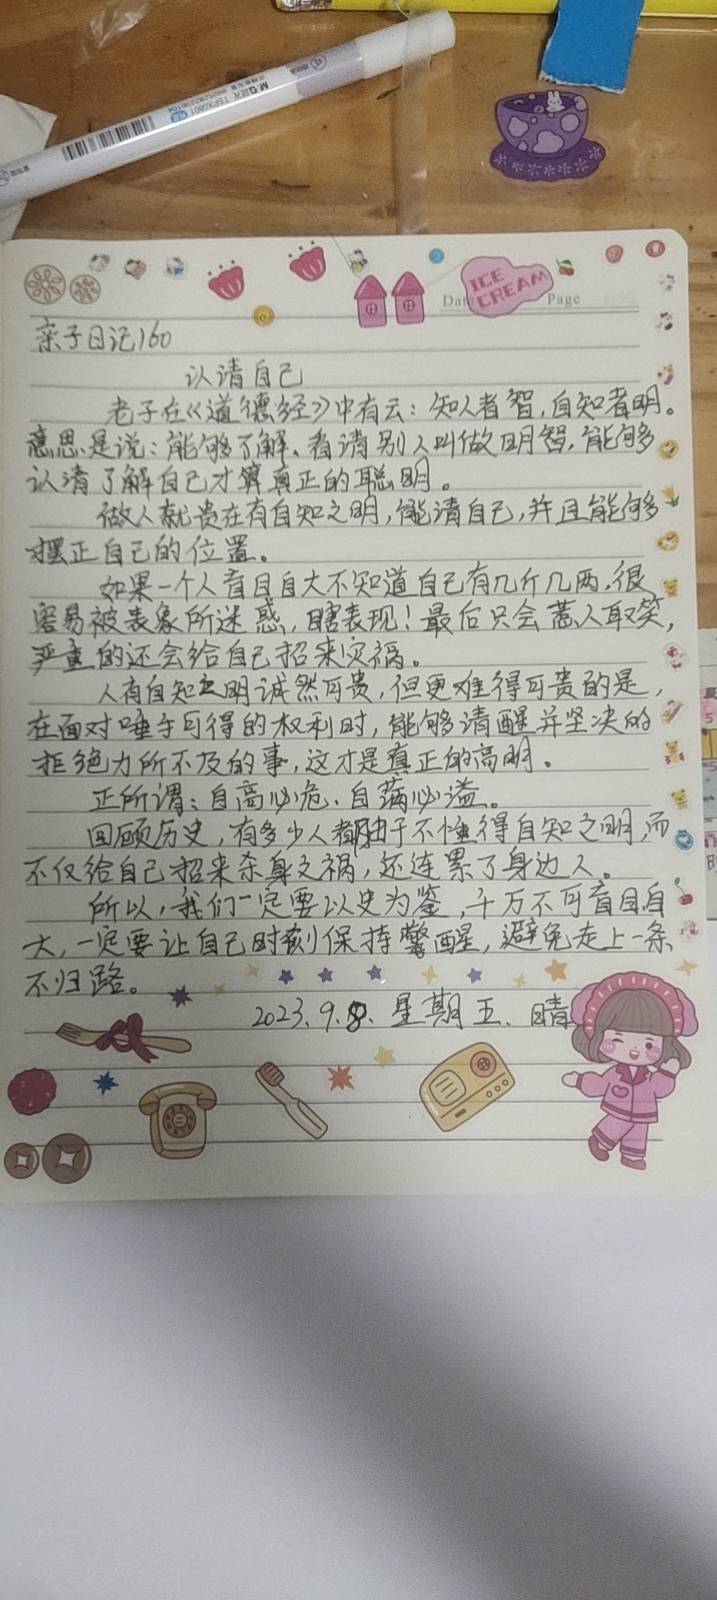 M&G 晨光
Date
ICE
CREAM
Page
亲子日记160
认清自己
老子在《道德经》中有云：知人者智，自知者明。
意思是说：能够了解、看清别人叫做明智，能够
认清了解自己才算真正的聪明。
做人就贵在有自知之明，能清自己，并且能够
摆正自己的位置。
如果一个人盲目自大不知道自己有几斤几两，很
容易被表象所迷惑，瞎表现！最后只会惹人取笑，
严重的还会给自己招来灾祸。
人有自知之明诚然可贵，但更难得可贵的是，
在面对唾手可得的权利时，能够清醒并坚决的
拒绝力所不及的事，这才是真正的高明。
正所谓：自高必危、自满必溢。
回顾历史，有多少人都由于不懂得自知之明，而
不仅给自己招来杀身之祸，还连累了身边人。
所以，我们一定要以史为鉴，千万不可盲目自
大，一定要让自己时刻保持警醒，避免走上一条
不归路。
2023.9.8. 星期五、晴